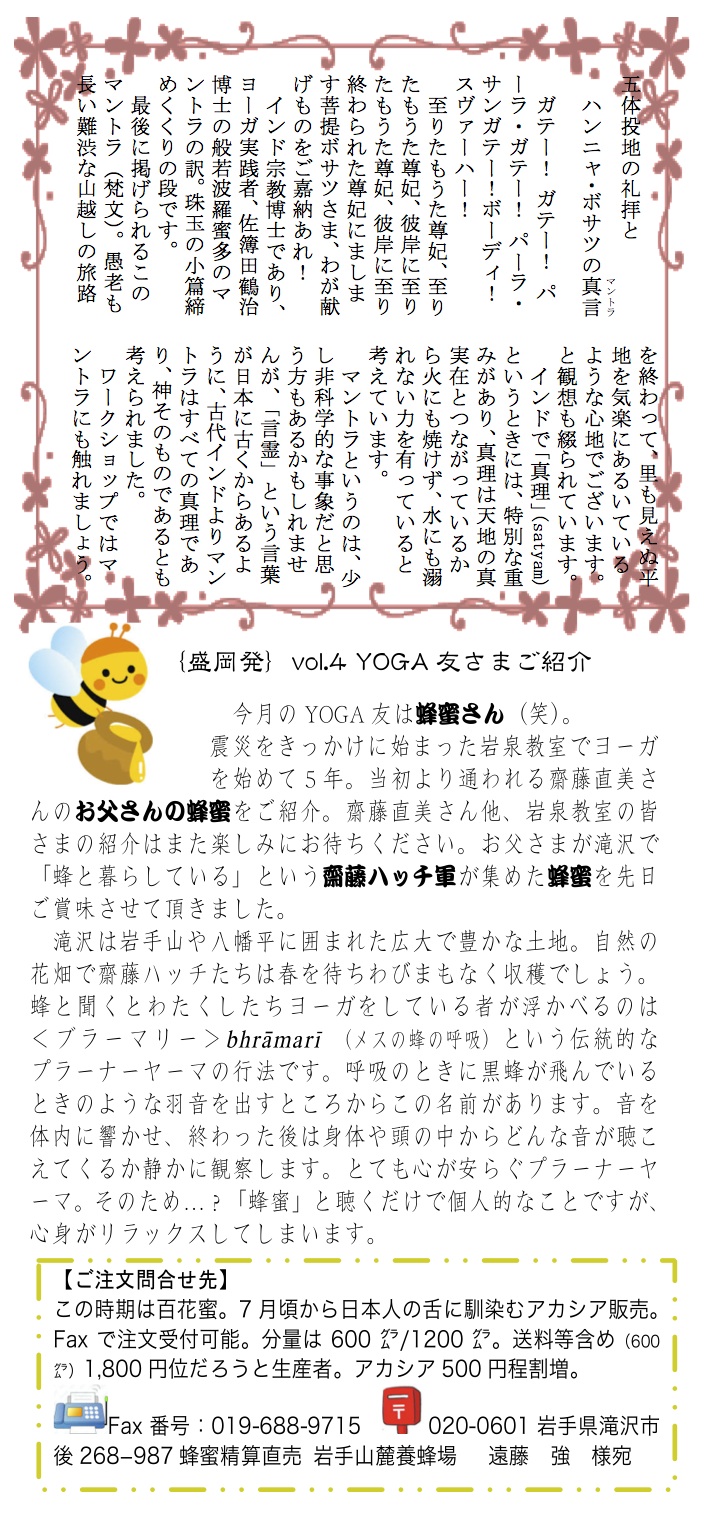 五体投地の礼拝と
ハンニャ・ボサツの真言
マントラ
ガテー! ガテー! パ
ーラ・ガテー! パーラ・
サンガテー!ボーディ!
スヴァーハー!
至りたもうた尊妃、至り
たもうた尊妃、彼岸に至り
たもうた尊妃、彼岸に至り
終わられた尊妃にましま
す菩提ボサツさま、わが献
げものをご嘉納あれ!
インド宗教博士であり、
ヨーガ実践者、佐簿田鶴治
博士の般若波羅蜜多のマ
ントラの訳。珠玉の小篇締
めくくりの段です。
最後に掲げられるこの
マントラ（梵文）。愚老も
長い難渋な山越しの旅路
を終わって、里も見えぬ平
地を気楽にあるいている
ような心地でございます。
と観想も綴られています。
インドで「真理」(satyam)
というときには、特別な重
みがあり、真理は天地の真
実在とつながっているか
ら火にも焼けず、水にも溺
れない力を有っていると
考えています。
マントラというのは、少
し非科学的な事象だと思
う方もあるかもしれませ
んが、「言霊」という言葉
が日本に古くからあるよ
うに、古代インドよりマン
トラはすべての真理であ
り、神そのものであるとも
考えられました。
ワークショップではマ
ントラにも触れましょう。
{盛岡発} vol.4 YOGA友さまご紹介
今月のYOGA友は蜂蜜さん（笑）。
震災をきっかけに始まった岩泉教室でヨーガ
を始めて5年。当初より通われる齋藤直美さ
んのお父さんの蜂蜜をご紹介。齋藤直美さん他、岩泉教室の皆
さまの紹介はまた楽しみにお待ちください。お父さまが滝沢で
「蜂と暮らしている」という齋藤ハッチ軍が集めた蜂蜜を先日
ご賞味させて頂きました。
滝沢は岩手山や八幡平に囲まれた広大で豊かな土地。自然の
花畑で齋藤ハッチたちは春を待ちわびまもなく収穫でしょう。
蜂と聞くとわたくしたちヨーガをしている者が浮かべるのは
＜ブラーマリー＞bhrāmarī （メスの蜂の呼吸）という伝統的な
プラーナーヤーマの行法です。呼吸のときに黒蜂が飛んでいる
ときのような羽音を出すところからこの名前があります。音を
体内に響かせ、終わった後は身体や頭の中からどんな音が聴こ
えてくるか静かに観察します。とても心が安らぐプラーナーヤ
ーマ。そのため…?「蜂蜜」と聴くだけで個人的なことですが、
心身がリラックスしてしまいます。
【ご注文問合せ先】
この時期は百花蜜。7月頃から日本人の舌に馴染むアカシア販売。
Faxで注文受付可能。分量は600㌘/1200㌘。送料等含め（600
㌘）1,800円位だろうと生産者。アカシア500円程割増。
Fax番号：019-688-9715 〒 020-0601岩手県滝沢市
後268−987蜂蜜精算直売 岩手山麓養蜂場 遠藤 強 様宛